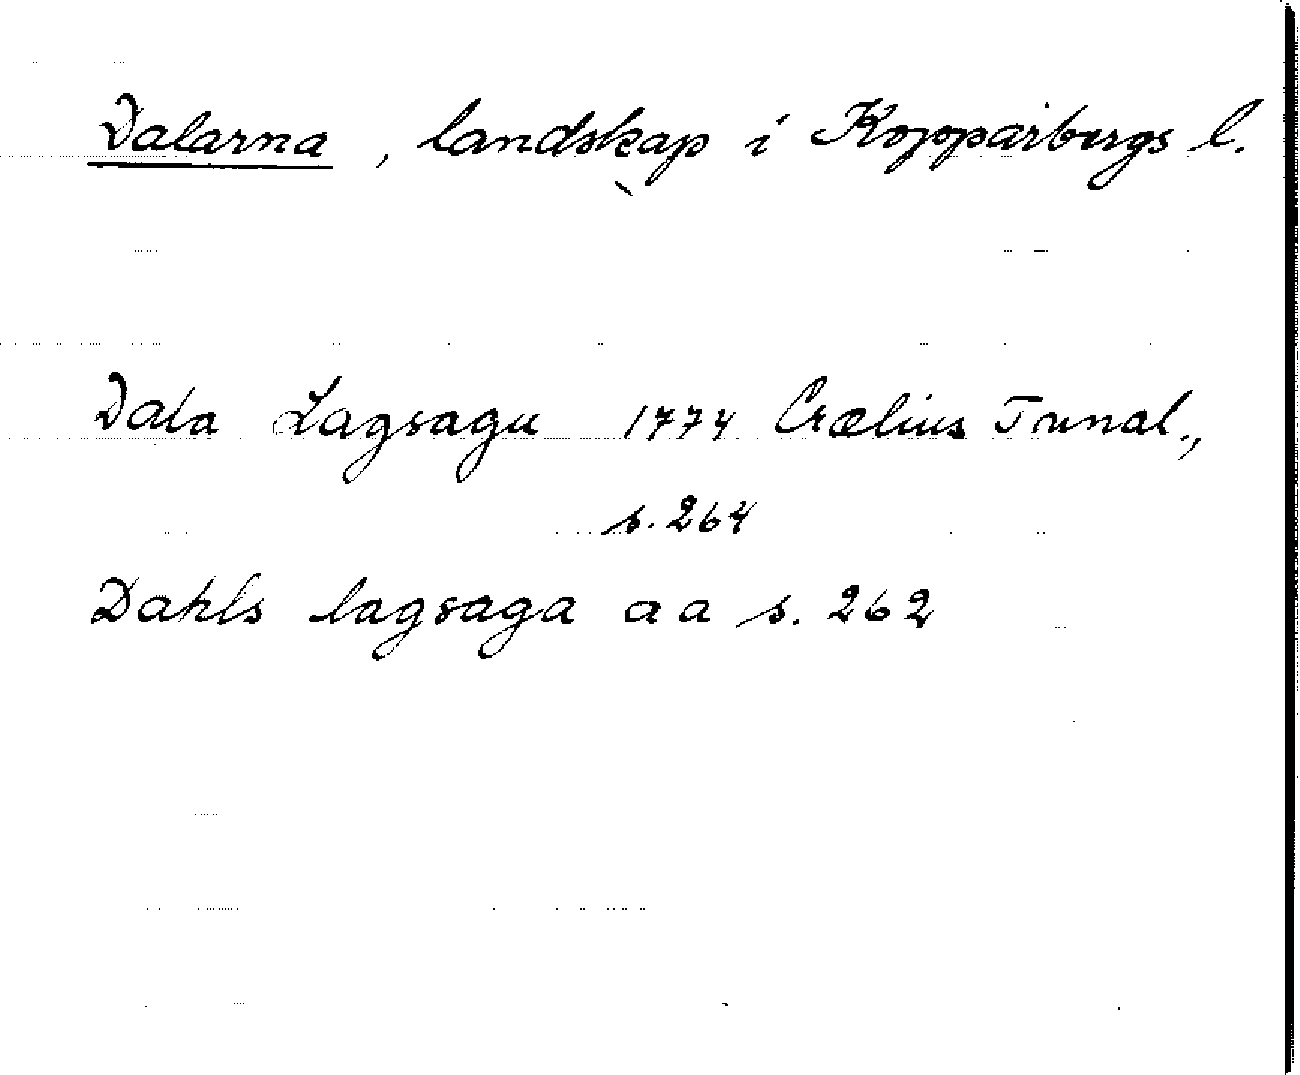 Dalarna, landskap i Kopparbergs l.
Dala Lagsagu 1774 Crælius Tunal.,
s. 264
Dahls lagsaga a a s. 262